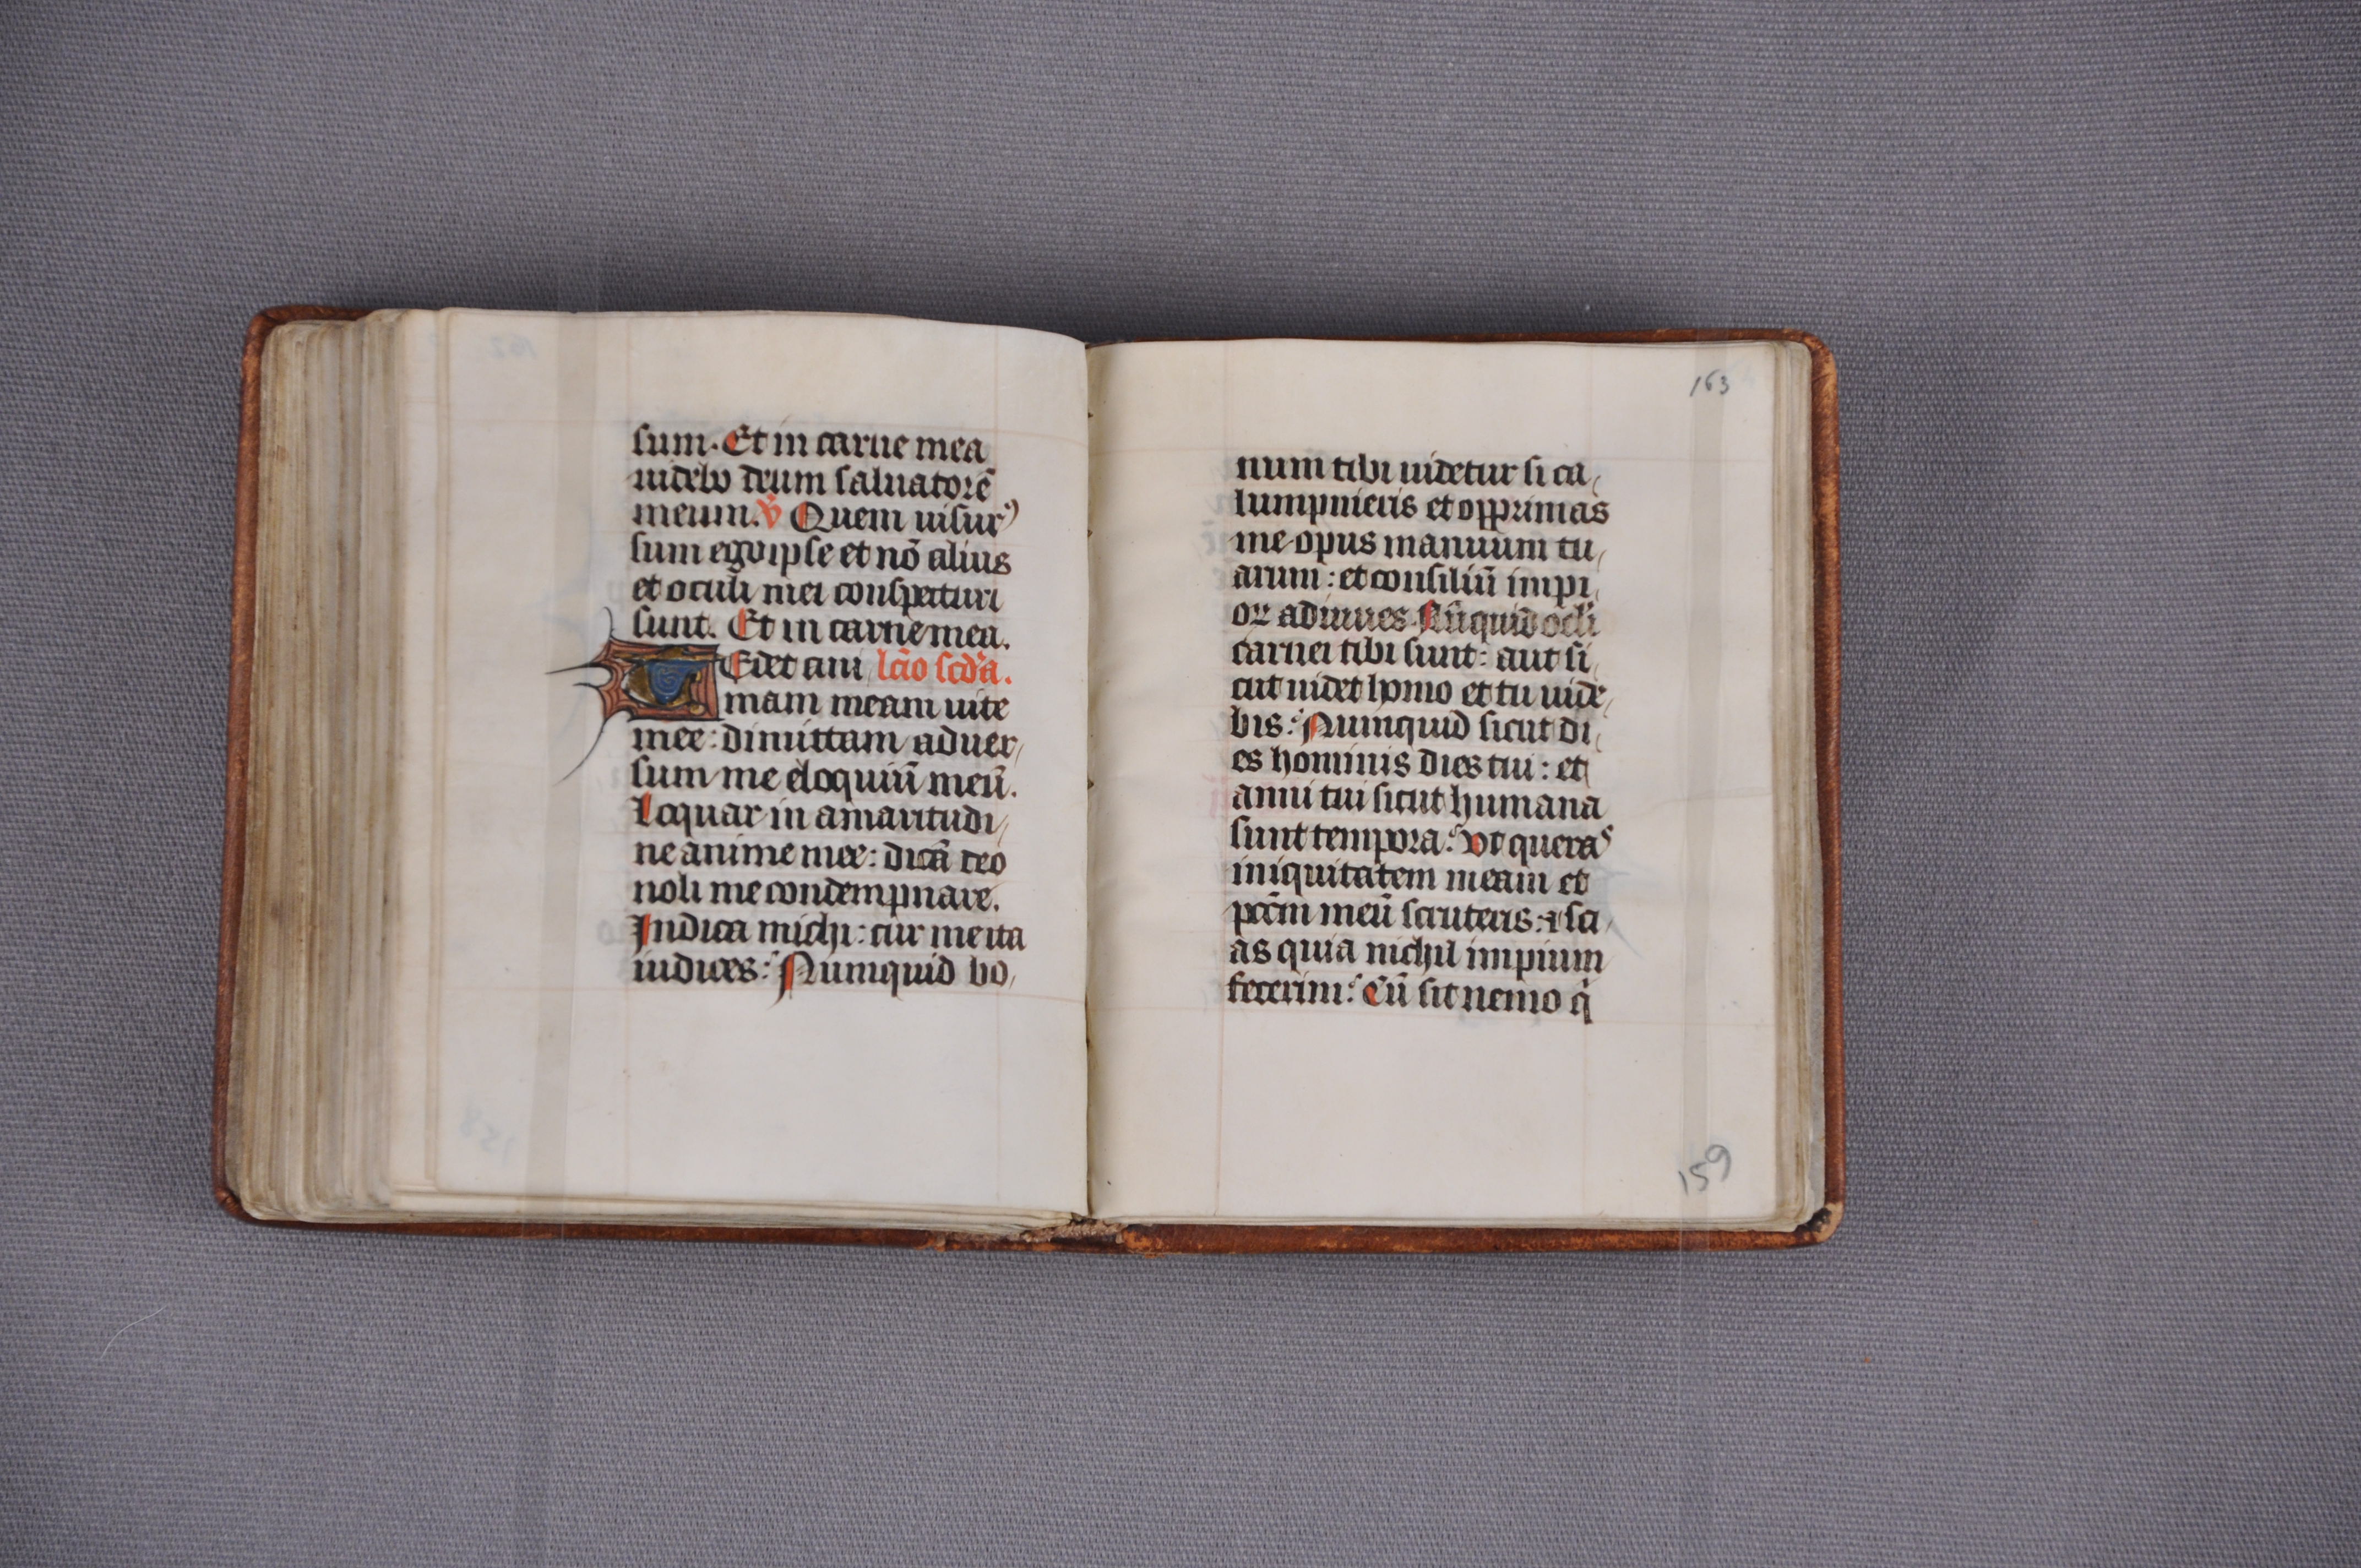 sum. Et in carne mea
uidebo deum saluatorē
meum. v̄ Quem uisurꝰ
sum ego ipse et nō alius
et oculi mei conspecturi
sunt. Et in carne mea.
TEdet ani lc̄io scd̄a.
mam meam uite
mee: dimittam aduer
sum me eloquiū meū.
Loquar in amaritudi
ne anime mee: dicā deo
noli me condempnare.
Indica michi: cur me ita
iudices: Numquid bo
163
num tibi uidetur si ca
lumpnieris et opprimas
me opus manuum tu
arum: et consiliū impi
oꝝ adiuues. Nūquid oc̄li
carnei tibi sunt: aut si
cut uidet homo et tu uide
bis: Numquid sicut di
es hominis dies tui: et
anni tui sicut humana
sunt tempora: Vt queras
iniquitatem meam et
pctm̄ meū scruteris: ⁊ sci
as quia nichil impium
fecerim: Cū sit nemo q̄
159